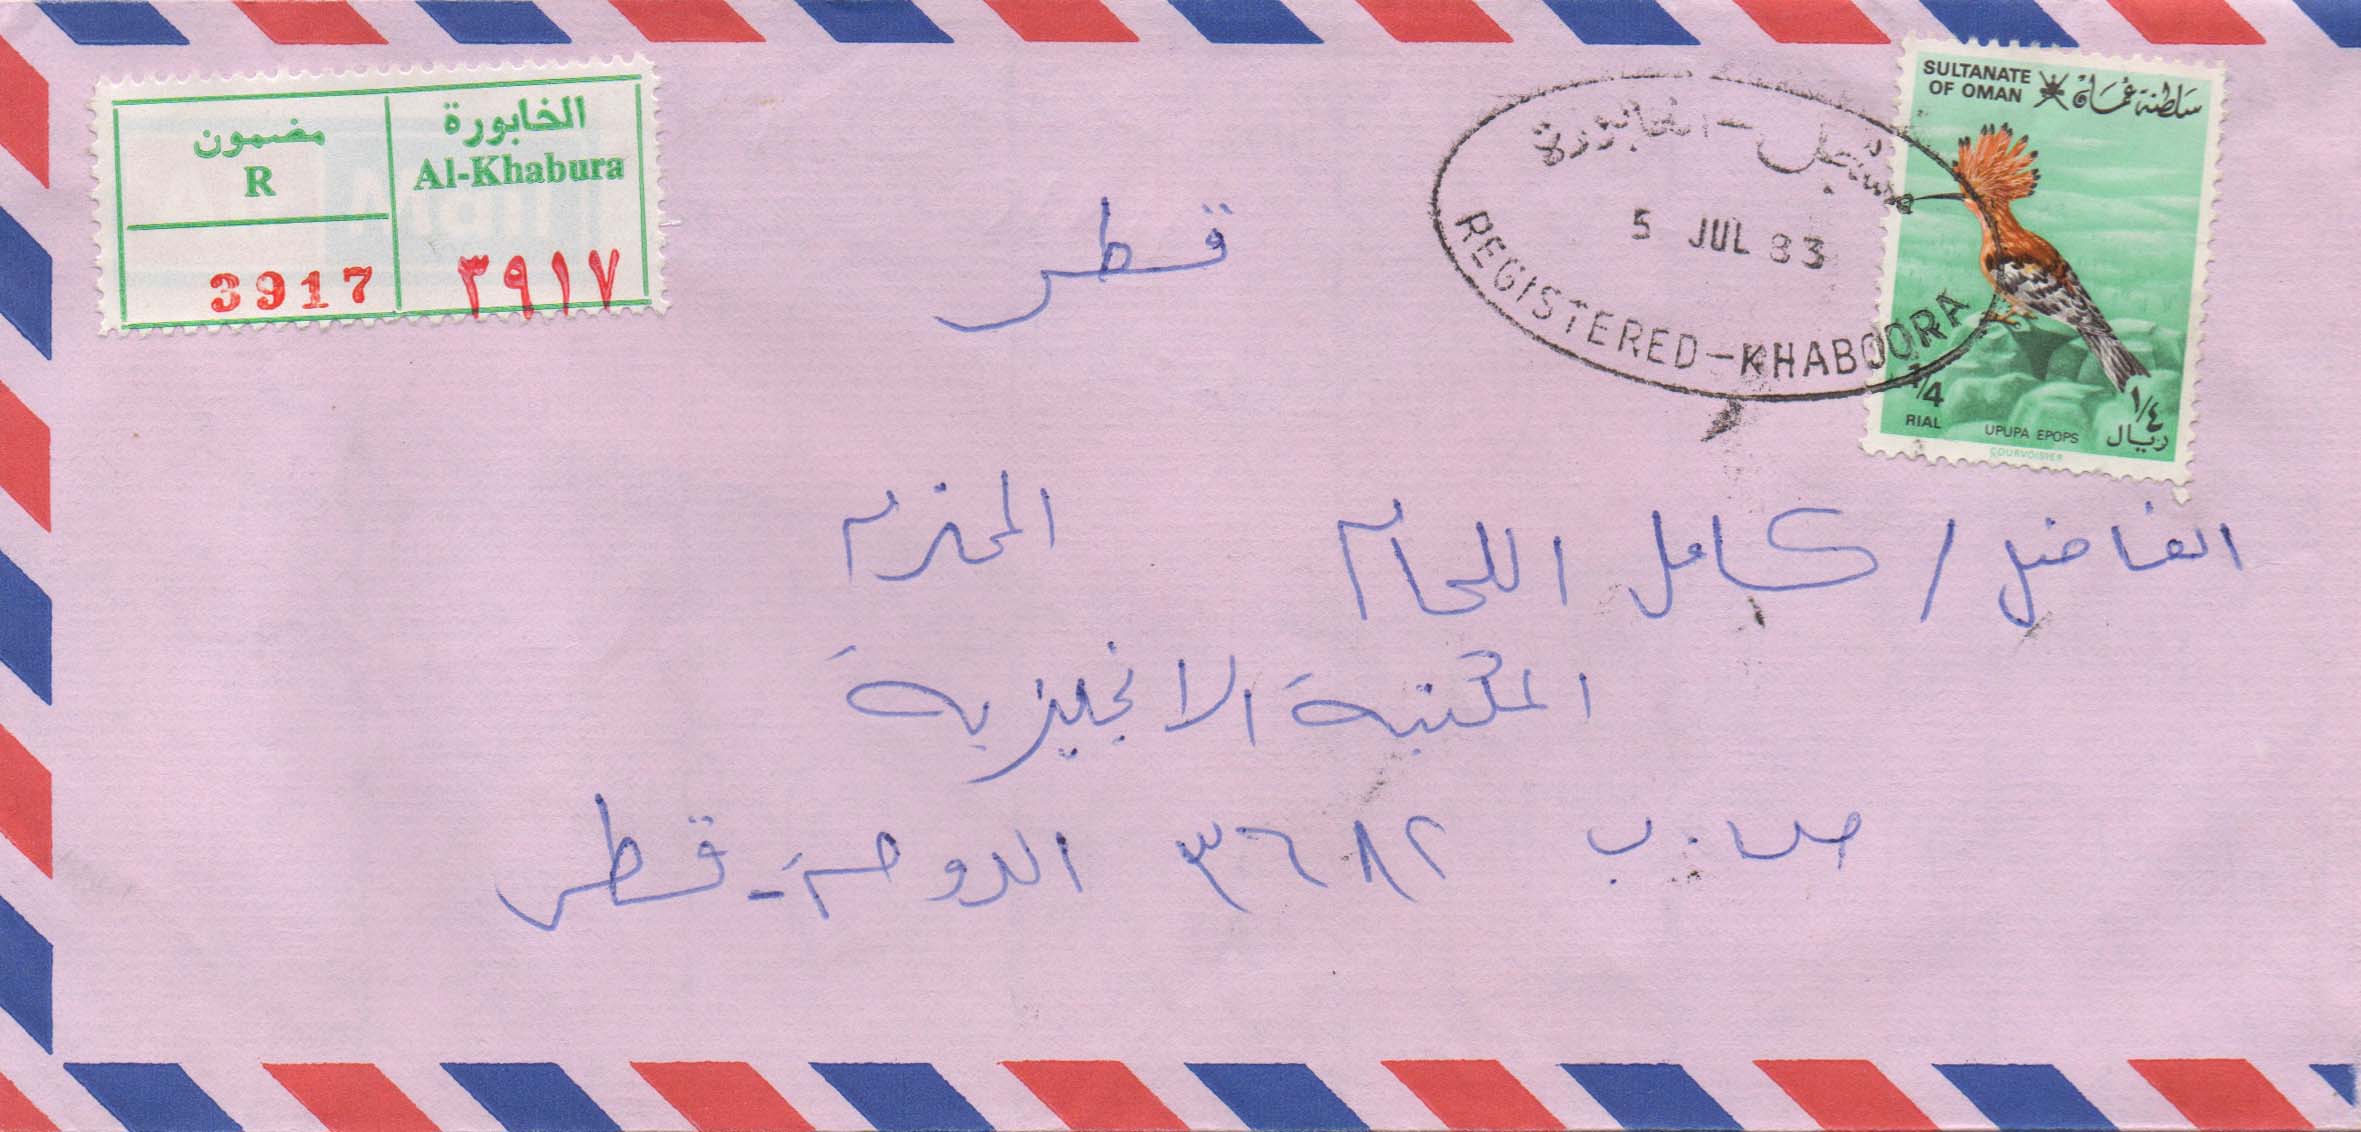 مضمون
R
3917
الخابورة
Al-Khabura
٣٩١٧
قطر
مسجل - الخابورة
5 JUL 83
REGISTERED-KHABOORA
SULTANATE OF OMAN
سلطنة عمان
1/4
RIAL
UPUPA EPOPS
١/٤
ريال
COURVOISIER
الفاضل / كامل اللحام المحترم
المكتبة الانجليزية
ص.ب ٣٦٨٢ الدوحة - قطر